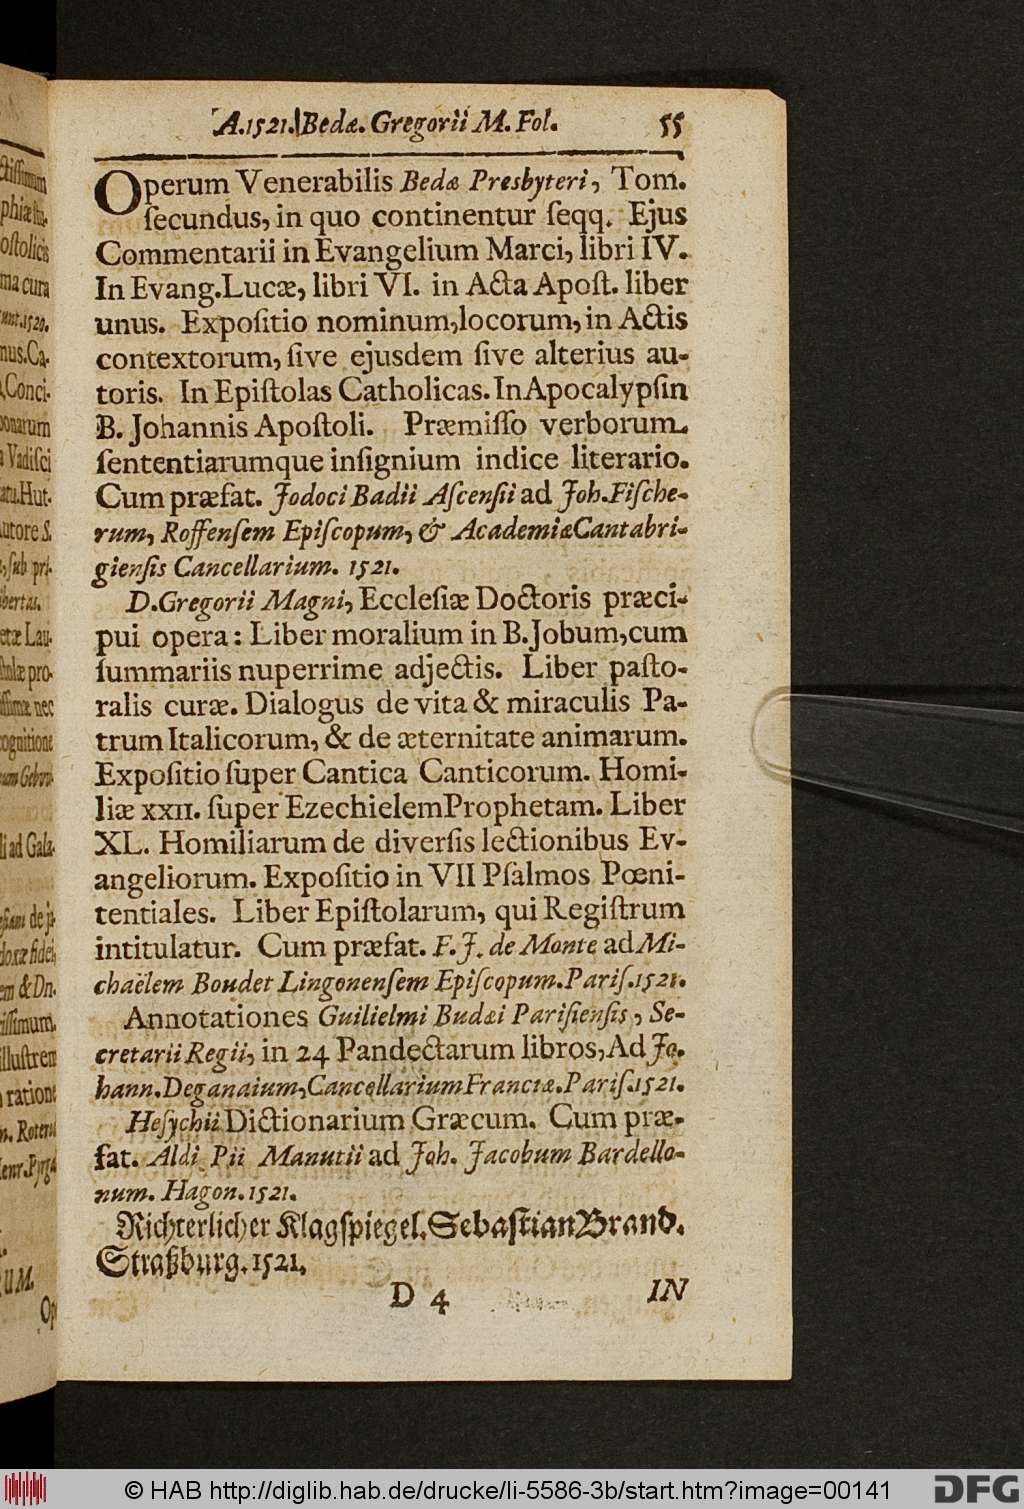 A.1521. Bedæ. Gregorii M. Fol. 55
Operum Venerabilis Bedæ Presbyteri, Tom.
ſecundus, in quo continentur ſeqq. Ejus
Commentarii in Evangelium Marci, libri IV.
In Evang.Lucæ, libri VI. in Acta Apoſt. liber
unus. Expoſitio nominum,locorum, in Actis
contextorum, ſive ejusdem ſive alterius au-
toris. In Epiſtolas Catholicas. In Apocalypſin
B. Johannis Apoſtoli. Præmiſſo verborum
ſententiarumque inſignium indice literario.
Cum præfat. Jodoci Badii Aſcenſii ad Joh.Fiſche-
rum, Roffenſem Epiſcopum, & Academiæ Cantabri-
gienſis Cancellarium. 1521.
D.Gregorii Magni, Eccleſiæ Doctoris præci-
pui opera: Liber moralium in B.Jobum,cum
ſummariis nuperrime adjectis. Liber paſto-
ralis curæ. Dialogus de vita & miraculis Pa-
trum Italicorum, & de æternitate animarum.
Expoſitio ſuper Cantica Canticorum. Homi-
liæ XXII. ſuper Ezechielem Prophetam. Liber
XL. Homiliarum de diverſis lectionibus Ev-
angeliorum. Expoſitio in VII Pſalmos Pœni-
tentiales. Liber Epiſtolarum, qui Regiſtrum
intitulatur. Cum præfat. F. J. de Monte ad Mi-
chaëlem Boudet Lingonenſem Epiſcopum.Pariſ.1521.
Annotationes Guilielmi Budæi Pariſienſis, Se-
cretarii Regii, in 24 Pandectarum libros, Ad Jo.
hann.Deganaium,Cancellarium Franciæ.Pariſ.1521.
Heſychii Dictionarium Græcum. Cum præ-
fat. Aldi Pii Manutii ad Joh. Jacobum Bardello-
num. Hagon. 1521.
Richterlicher Klagſpiegel. Sebaſtian Brand.
Straßburg. 1521.
D 4 IN
© HAB http://diglib.hab.de/drucke/li-5586-3b/start.htm?image=00141
DFG